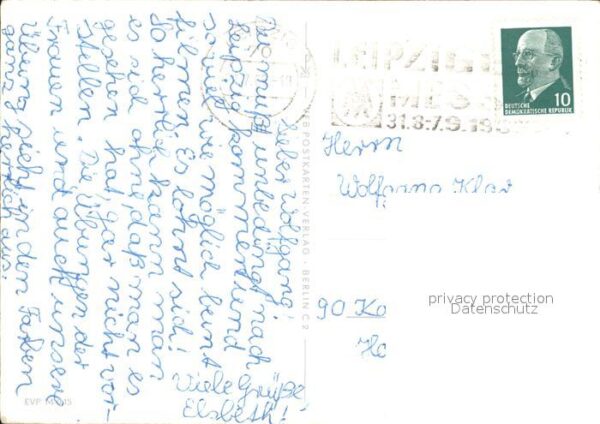 Lieber Wolfgang!
Du mußt unbedingt nach
Leipzig kommen und
so viel wie möglich hier
filmen. Es lohnt sich!
So herrlich kann man
es sich ohne daß man es
gesehen hat, gar nicht vor-
stellen. Die Übungen der
Frauen und auch unsere
Übung sieht in den Farben
ganz herrlich aus.
Viele Grüße
Elsbeth!
POSTKARTEN VERLAG · BERLIN C 2
EVP
LEIPZIGER
MESSE
31.8.-7.9.19
DEUTSCHE
DEMOKRATISCHE REPUBLIK
10
Herrn
Wolfgang Klar
90 Ka
privacy protection
Datenschutz